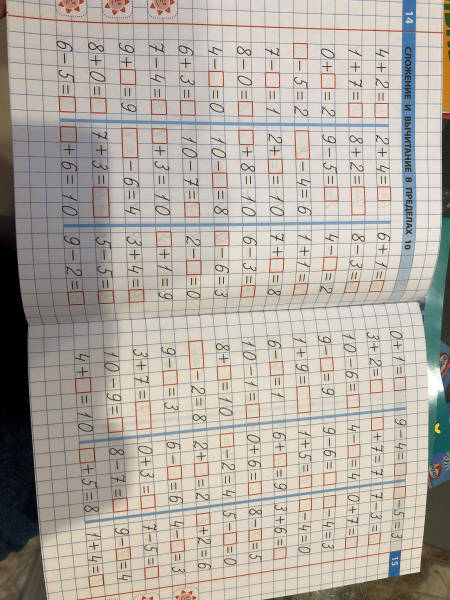 14 СЛОЖЕНИЕ И ВЫЧИТАНИЕ В ПРЕДЕЛАХ 10
4+2=□ 2+4=□ 6+1=□
1+7=□ 8+2=□ 8−3=□
0+□=2 9−5=□ 4−□=2
□−5=2 □−4=6 1+1=□
7−□=1 2+□=10 7+□=8
8−0=□ □+8=10 6−3=□
4−□=0 10−□=8 □−6=3
6+3=□ 10−7=□ 2−□=0
7−4=□ □+3=10 □+1=9
9+□=9 □−6=4 3+4=□
8+0=□ 7+3=□ 5−5=□
6−5=□ □+6=10 9−2=□
15
0+1=□ 9−4=□ □−5=3
3+2=□ □+7=7 7−3=□
10−6=□ 4−□=4 0+7=□
9−□=9 9−6=□ □−4=3
1+9=□ 1+5=□ □−4=0
6−□=1 6+□=9 3+6=□
10−1=□ 0+6=□ 8−□=5
8+□=10 □−2=4 5−□=0
□−2=8 2+□=2 □+2=6
9−□=3 6−□=6 4−□=3
3+7=□ 0+3=□ 7−5=□
10−9=□ 8−7=□ 9−□=4
4+□=10 □+5=8 1+4=□